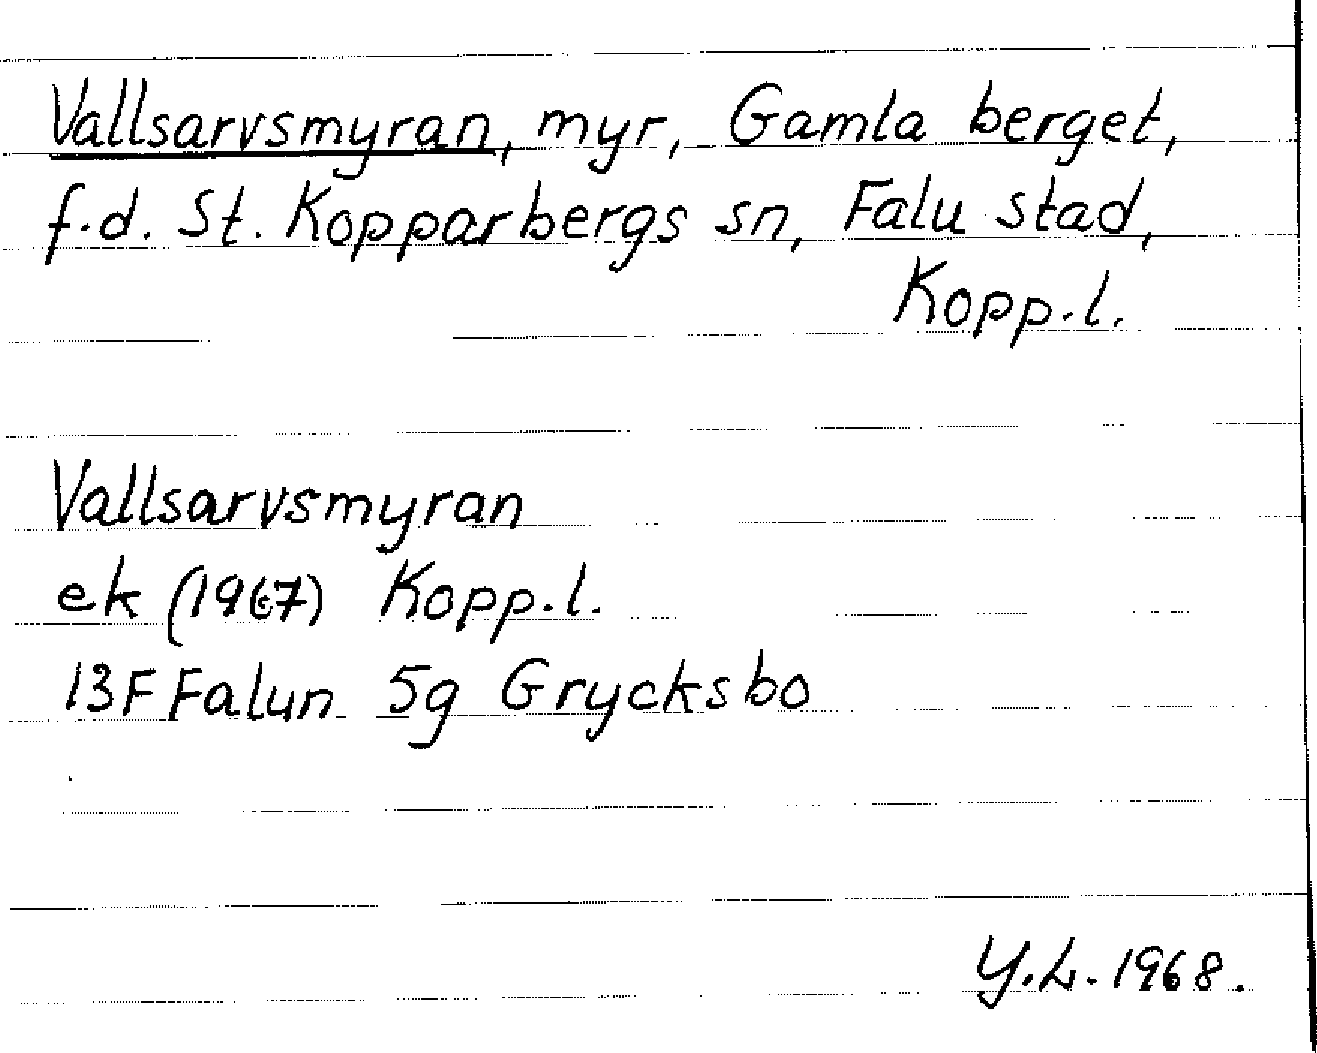 Vallsarvsmyran, myr, Gamla berget,
f.d. St. Kopparbergs sn, Falu stad,
Kopp.l.
Vallsarvsmyran
ek (1967) Kopp.l.
13F Falun 5g Grycksbo
Y.L. 1968.